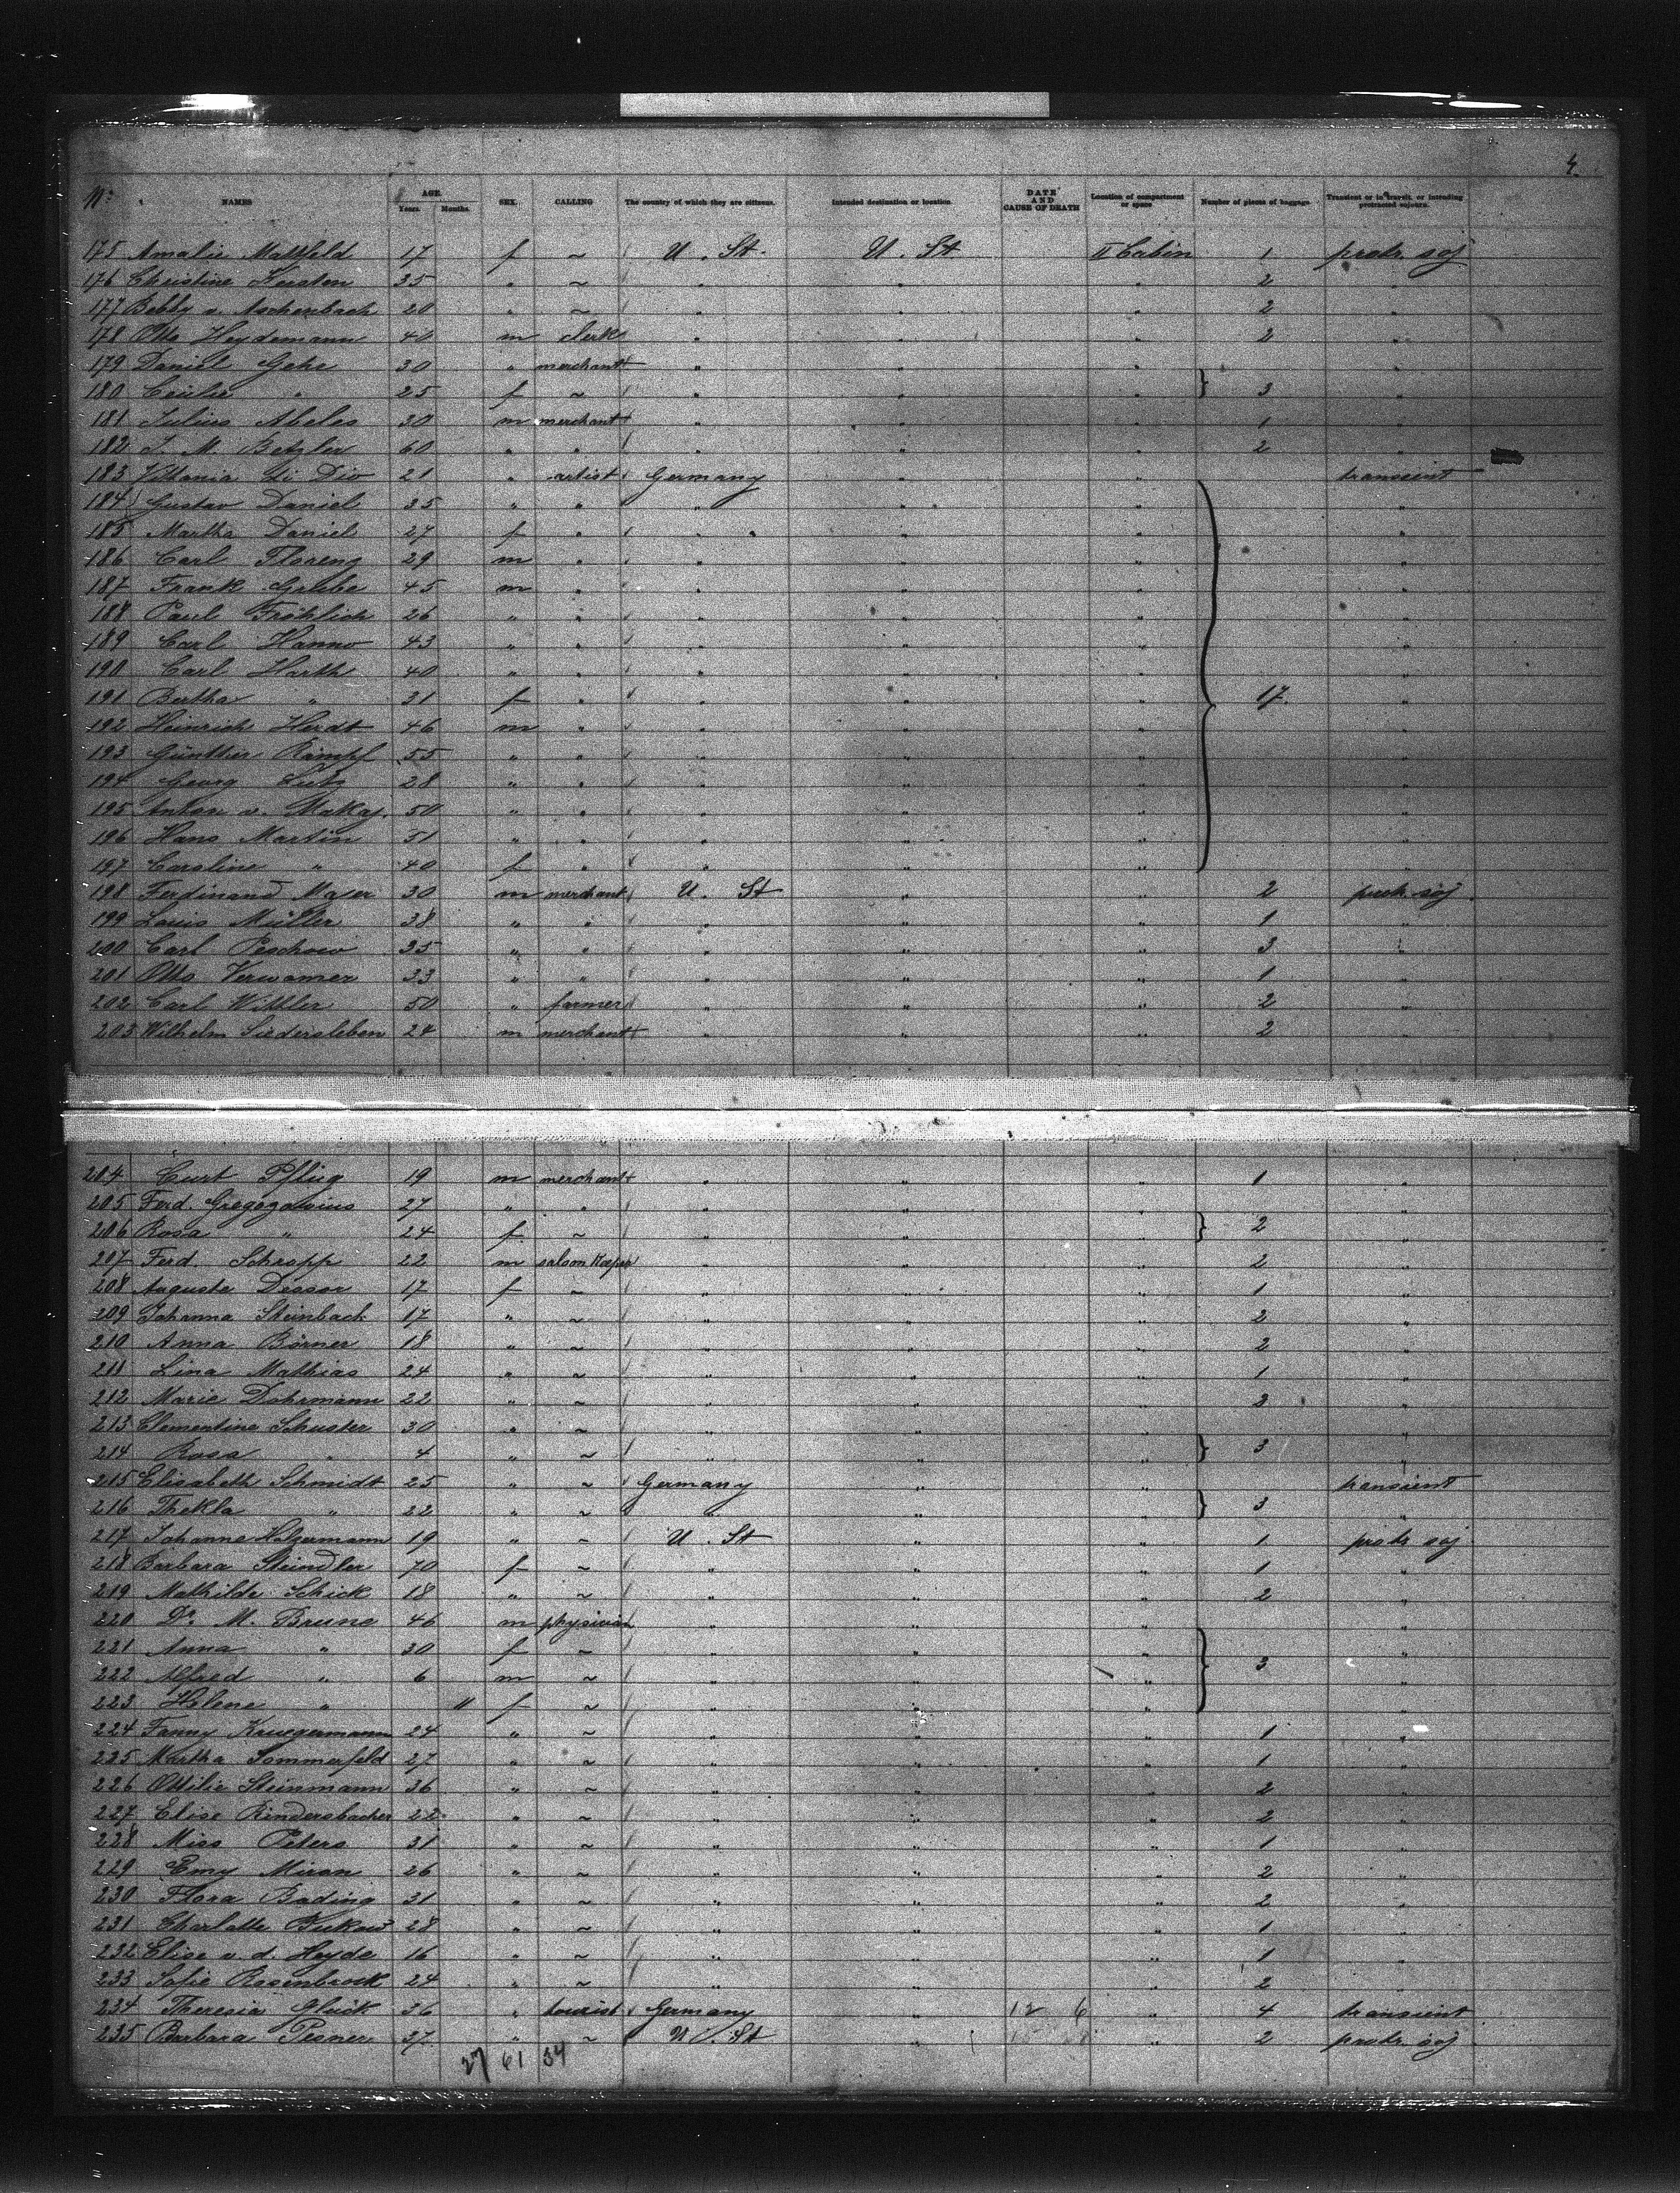 4.
No. NAMES AGE. Years. Months. SEX. CALLING The country of which they are citizens. Intended destination or location. DATE AND CAUSE OF DEATH Location of compartment or space Number of pieces of baggage. Transient or in transit, or intending protracted sojourn.
175 Amalie Mattfeld 17 f ~ U. St. U. St II Cabin 1 protr. soj
176 Christine Kersten 35 " ~ " " " 2 "
177 Bebby v. Aschenbach 20 " ~ " " " 2 "
178 Otto Heydemann m clerk " " " 2 "
179 Daniel Gehe 30 " merchant " " " "
180 Cecilie " 25 f ~ " " " } 3 "
181 Julius Abeles 30 m merchant " " " 1 "
182 J. M. Betzler 60 " " " " " 2 "
183 Di Dio 21 " artist Germany " " transient
184 Gustav Daniel 35 " " " " " "
185 Martha Daniel 27 f " " " " "
186 Carl Florenz 29 m " " " " "
187 Frank 45 m " " " " "
188 Paul Fröhlich 26 " " " " " "
189 Carl Hanno 43 " " " " " "
190 Carl Harth 40 " " " " " "
191 Bertha " 31 f " " " " 17 "
192 Heinrich Herdt 46 m " " " " "
193 Günther Kämpf 55 " " " " " "
194 Georg 28 " " " " " "
195 Anton v. 50 " " " " " "
196 Hans Martin 51 " " " " " "
197 Caroline " 40 f " " " " "
198 Ferdinand Mayer 30 m merchant U. St " " 2 protr. soj
199 Louis Müller 38 " " " " " 1 "
200 Carl Peschow 35 " " " " " 3 "
201 Otto Verwamer 33 " " " " " 1 "
202 Carl Wittler 50 " farmer " " " 2 "
203 Wilhelm Siedersleben 24 m merchant " " " 2 "
204 Curt Pflug 19 m merchant " " " 1 "
205 Ferd. 27 " " " " " "
206 Rosa " 24 f ~ " " " } 2 "
207 Ferd. Schropp 22 m saloon keeper " " " 2 "
208 Auguste Dessar 17 f ~ " " " 1 "
209 Johanna Steinbach 17 " ~ " " " 2 "
210 Anna Börner 18 " ~ " " " 2 "
211 Lina Mathias 24 " ~ " " " 1 "
212 Marie Dohrmann 22 " ~ " " " 3 "
213 Clementine Schuster 30 " ~ " " " "
214 Rosa " 4 " ~ " " " } 3 "
215 Elisabeth Schmidt 25 " ~ Germany " " transient
216 Thekla " 22 " ~ " " " } 3 "
217 Johanne 19 " ~ U. St " " 1 protr. soj
218 Barbara Steindler 70 f ~ " " " 1 "
219 Mathilde Schick 18 " ~ " " " 2 "
220 Dr. M. Brune 46 m physician " " " "
221 Anna " 30 f ~ " " " } 3 "
222 Alfred " 6 m ~ " " " "
223 Helene " 11 f ~ " " " "
224 Fanny Kruegermann 24 " ~ " " " 1 "
225 Martha Sommerfeld 27 " ~ " " " 1 "
226 Ottilie Steinmann 36 " ~ " " " 2 "
227 Elise Rindersbacher 22 " ~ " " " 2 "
228 Miss Peters 31 " ~ " " " 1 "
229 Emy Miran 26 " ~ " " " 2 "
230 Flora Bading 31 " ~ " " " 2 "
231 Charlotte 28 " ~ " " " 1 "
232 Elise v. d. Heyde 16 " ~ " " " 1 "
233 Sofie Rosenbrock 24 " ~ " " " 2 "
234 Theresia Glück 36 " tourist Germany " 12 6 " 4 transient
235 Barbara Pesner 37 " ~ U. St " " 2 protr. soj
27 61 34